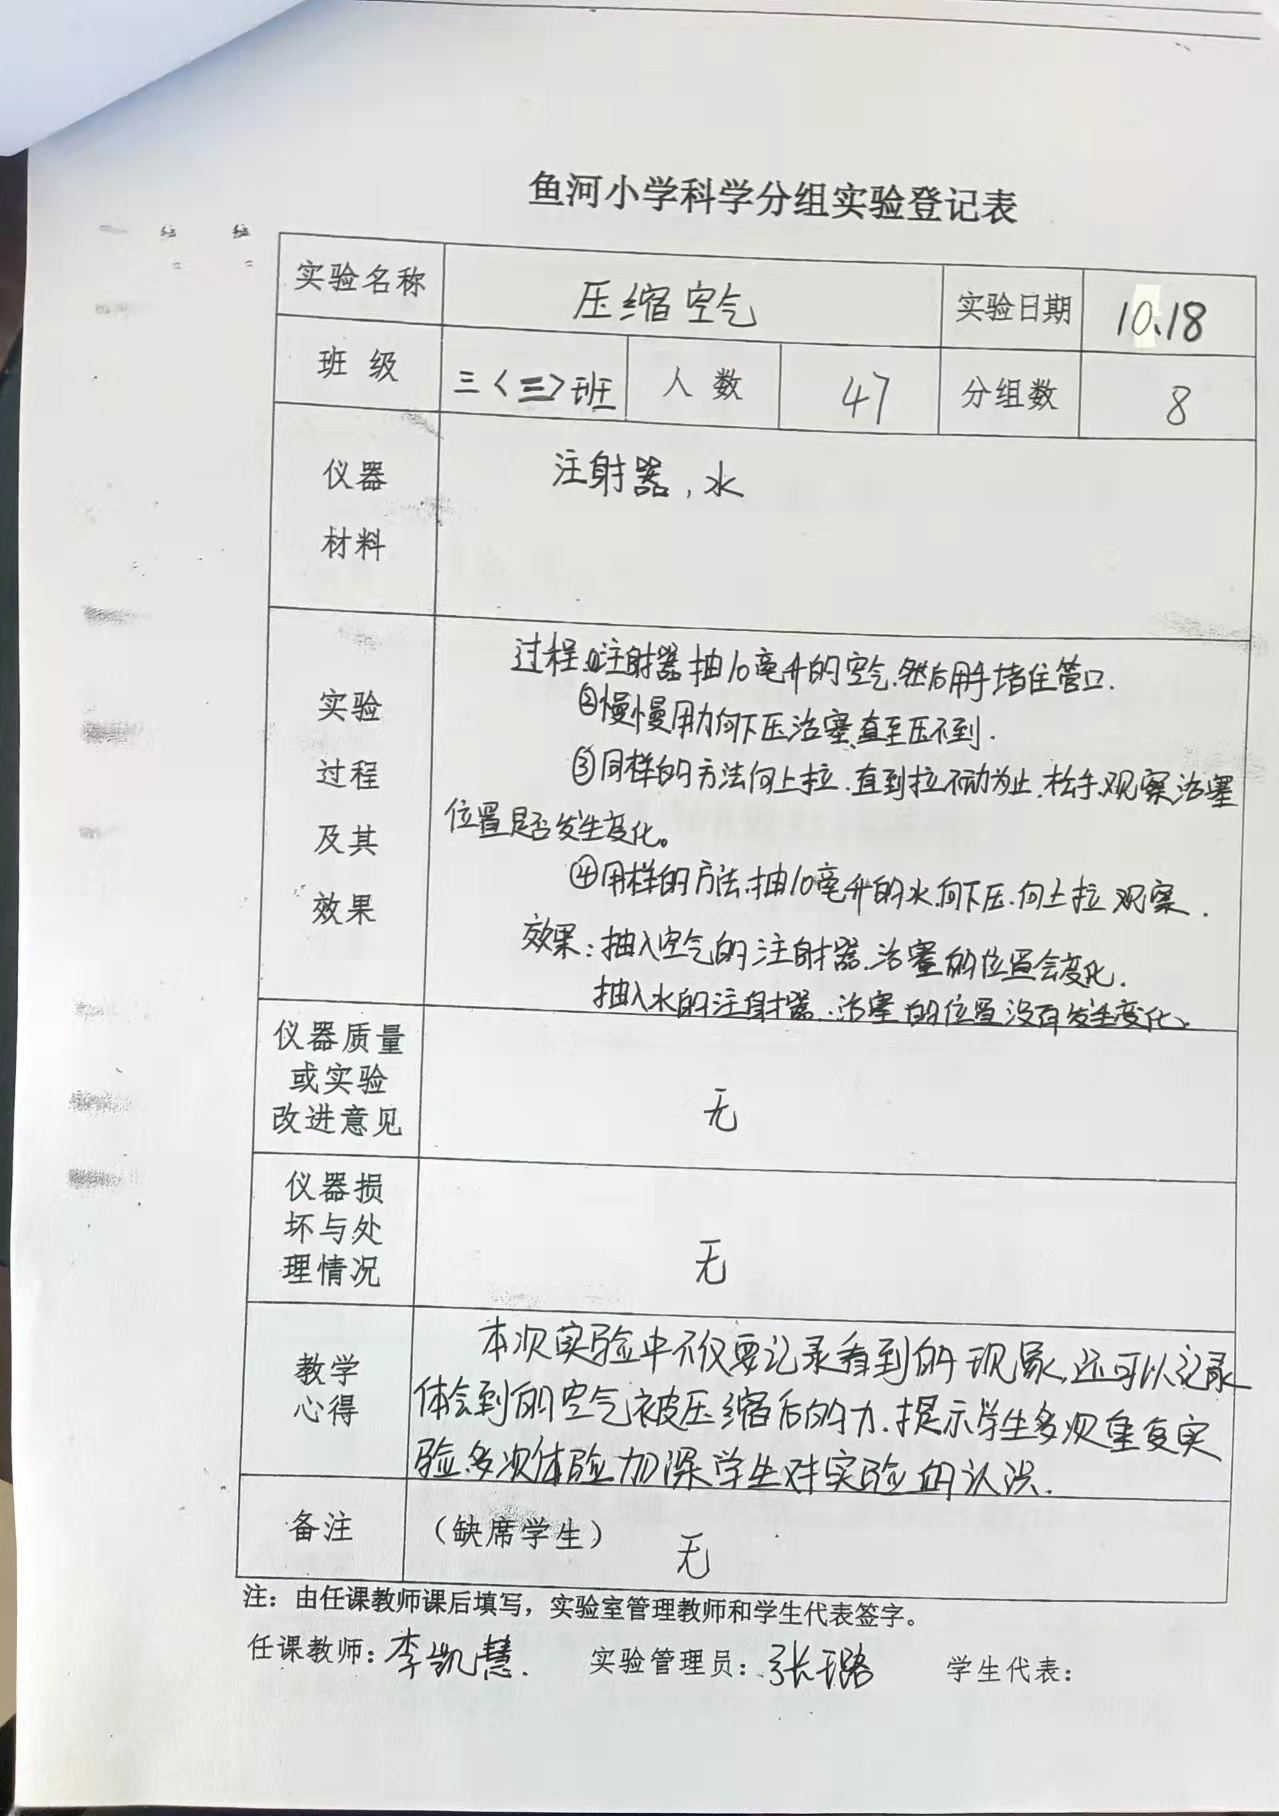 鱼河小学科学分组实验登记表
实验名称 压缩空气 实验日期 10.18
班 级 三〈三〉班 人 数 47 分组数 8
仪器 注射器，水
材料
过程①注射器抽10毫升的空气，然后用手堵住管口．
②慢慢用力向下压活塞，直至压不到．
实验
③同样的方法向上拉．直到拉不动为止．松手，观察活塞
过程
位置是否发生变化。
及其
④用样的方法，抽10毫升的水，向下压．向上拉 观察．
效果
效果：抽入空气的注射器．活塞的位置会变化．
抽入水的注射器．活塞的位置没有发生变化、
仪器质量
或实验
改进意见
无
仪器损
坏与处
理情况
无
教学
心得
本次实验中不仅要记录看到的现象，还可以记录
体会到的空气被压缩后的力．提示学生多次重复实
验，多次体验加深学生对实验的认识．
备注 （缺席学生） 无
注：由任课教师课后填写，实验室管理教师和学生代表签字。
任课教师：李凯慧． 实验管理员：张璐 学生代表：